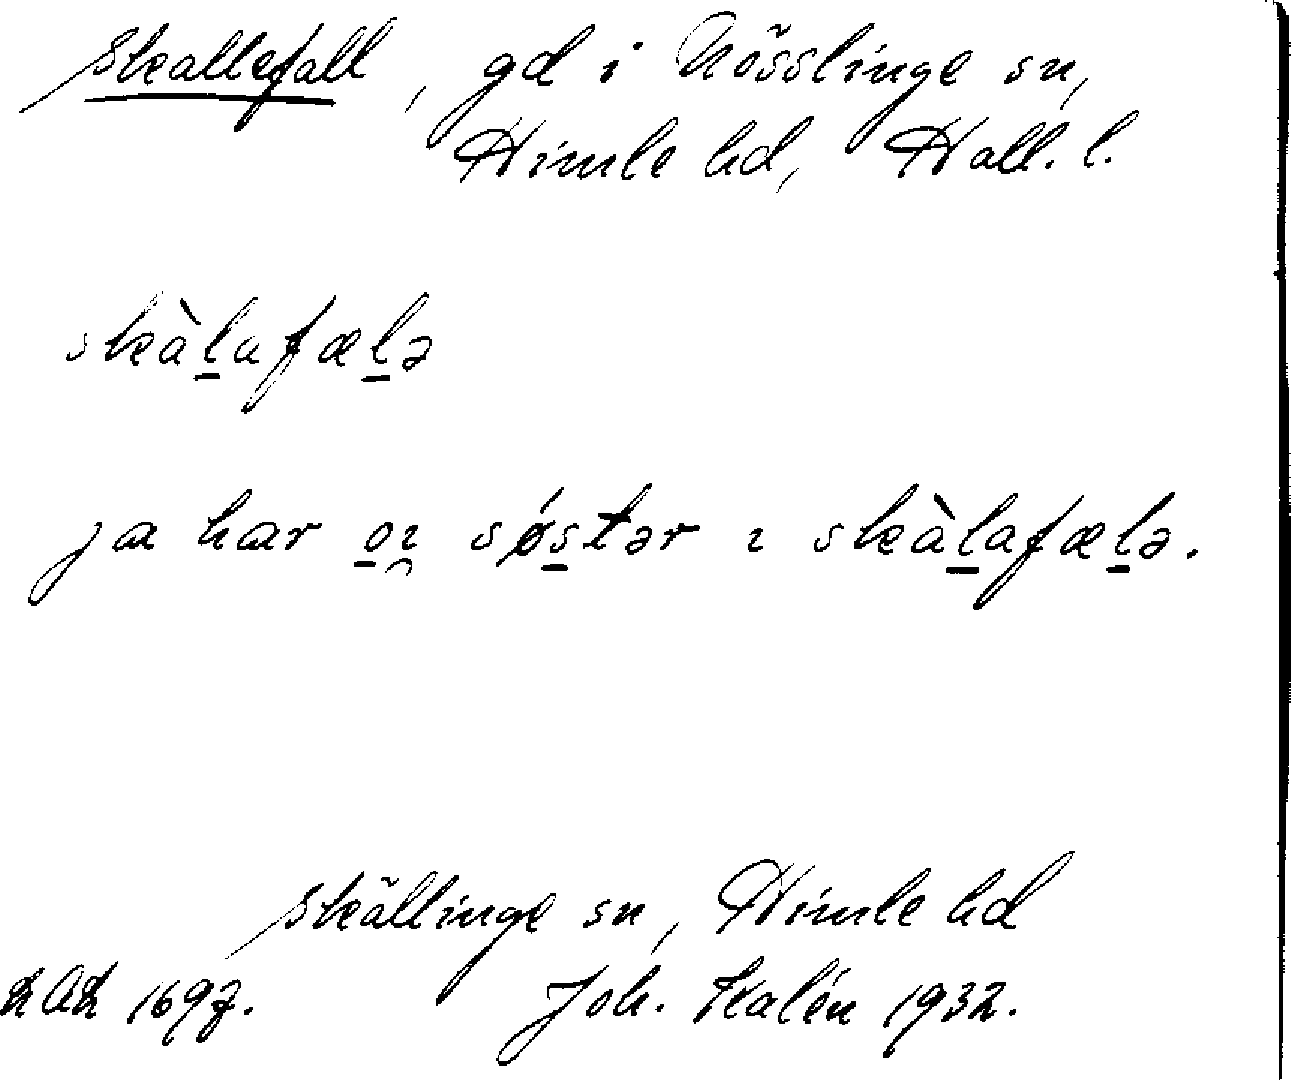 Skallefall, gd i Nösslinge sn,
Himle hd, Hall. l.
skàl̲afæl̲ə
ja har o̲ı̯ søs̲tər ı skàl̲afæl̲ə.
Skällinge sn, Himle hd
Joh. Kalén 1932.